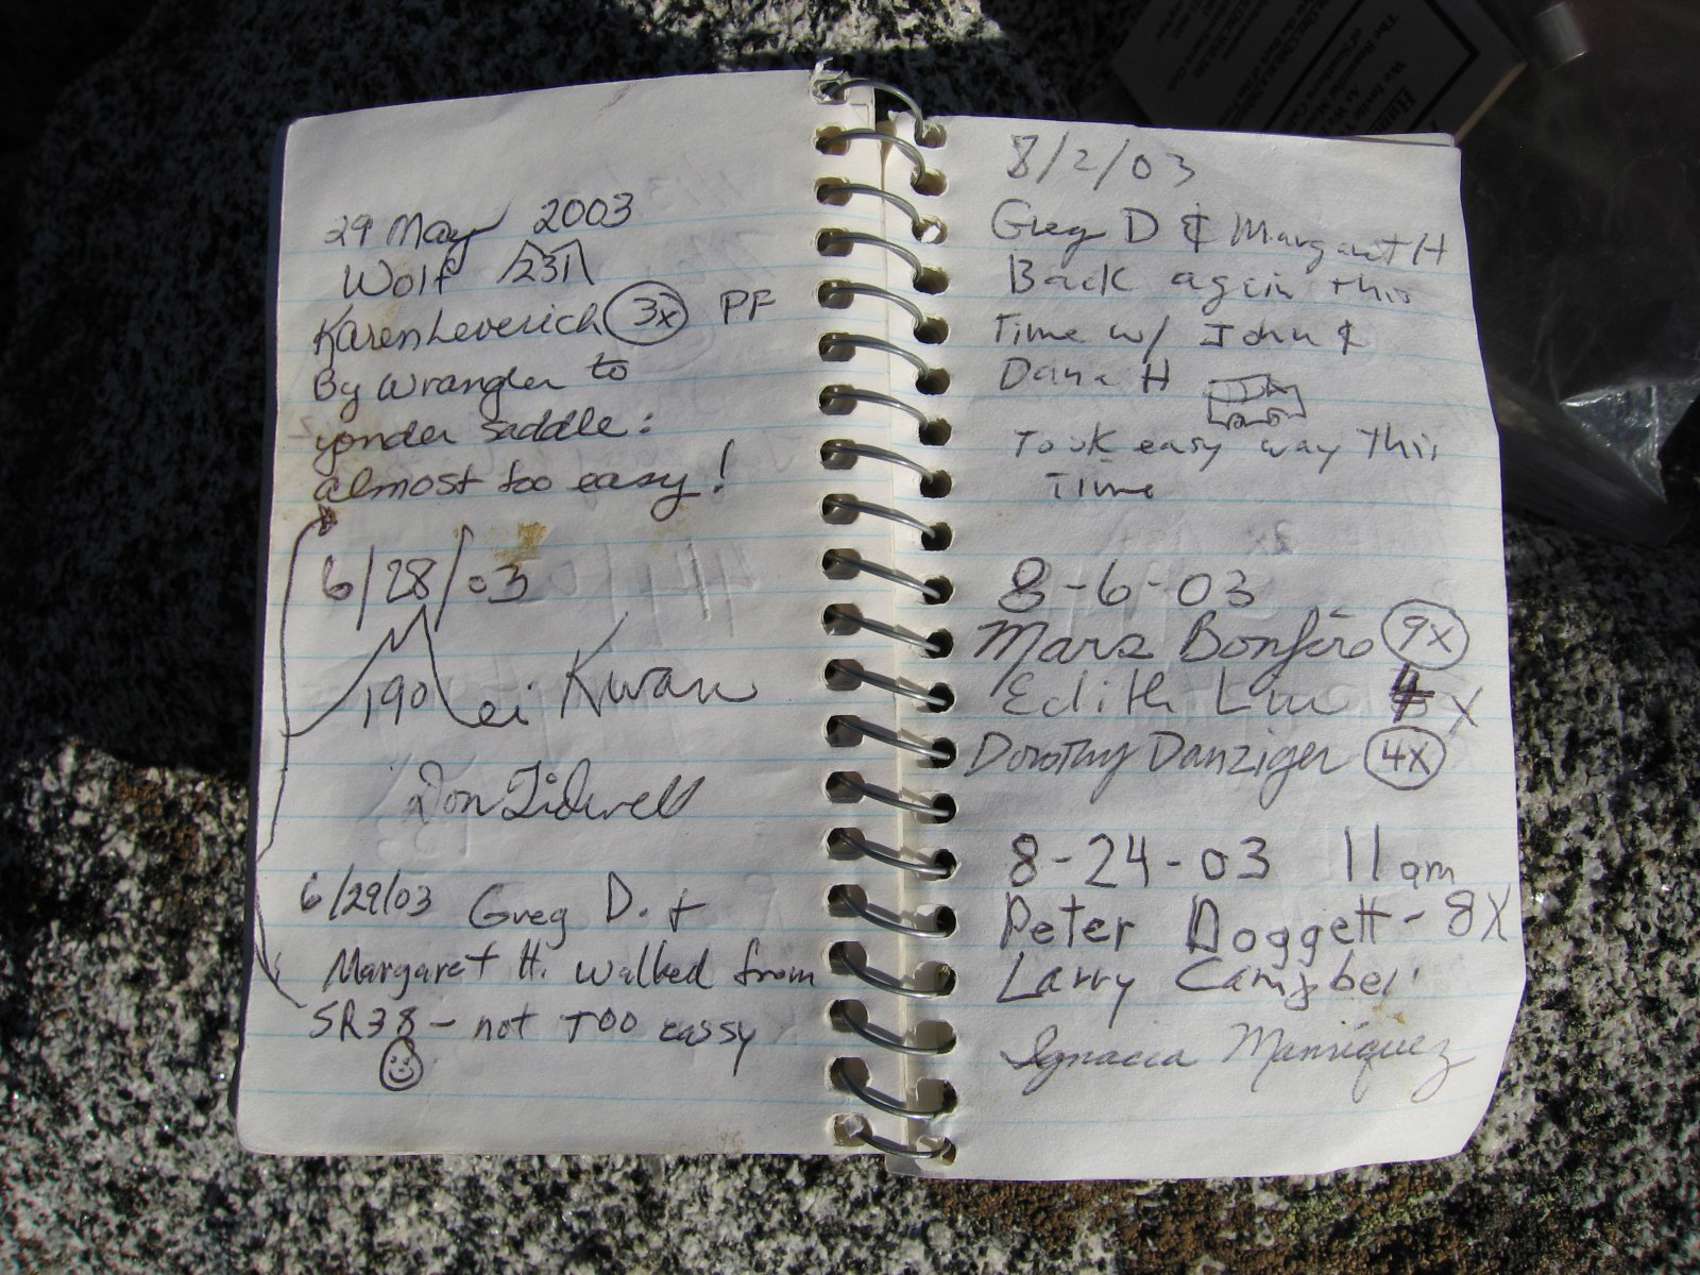 29 May 2003
Wolf 231
Karen Leverich 3x PF
By Wrangler to
yonder saddle:
almost too easy!
6/28/03
190 Lei Kwan
Don Tidwell
6/29/03 Greg D. +
Margaret H. walked from
SR38 - not TOO eassy
8/2/03
Greg D & Margaret H
Back again this
Time w/ John &
Dana H
Took easy way This
Time
8-6-03
Mars Bonfire 9x
Edith Liu 4 X
Dorothy Danziger 4x
8-24-03 11am
Peter Doggett - 8X
Larry Campbell
Ignacia Manriquez